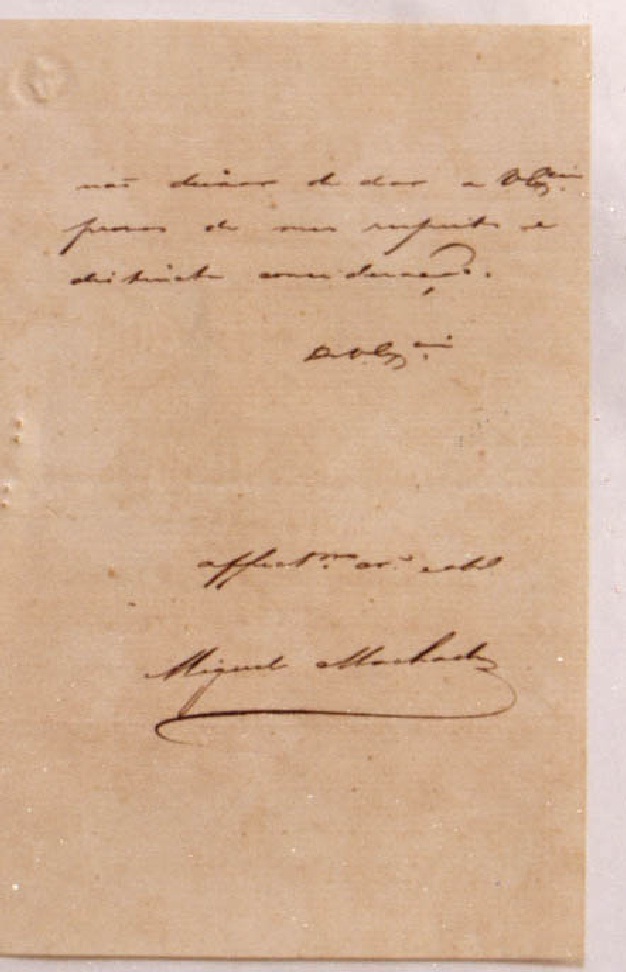 não deixar de dar a V Ex.cia
provas de meu respeito e
distincta consideração.
De V Ex.cia
affect.mo cr.o
Miguel Machado